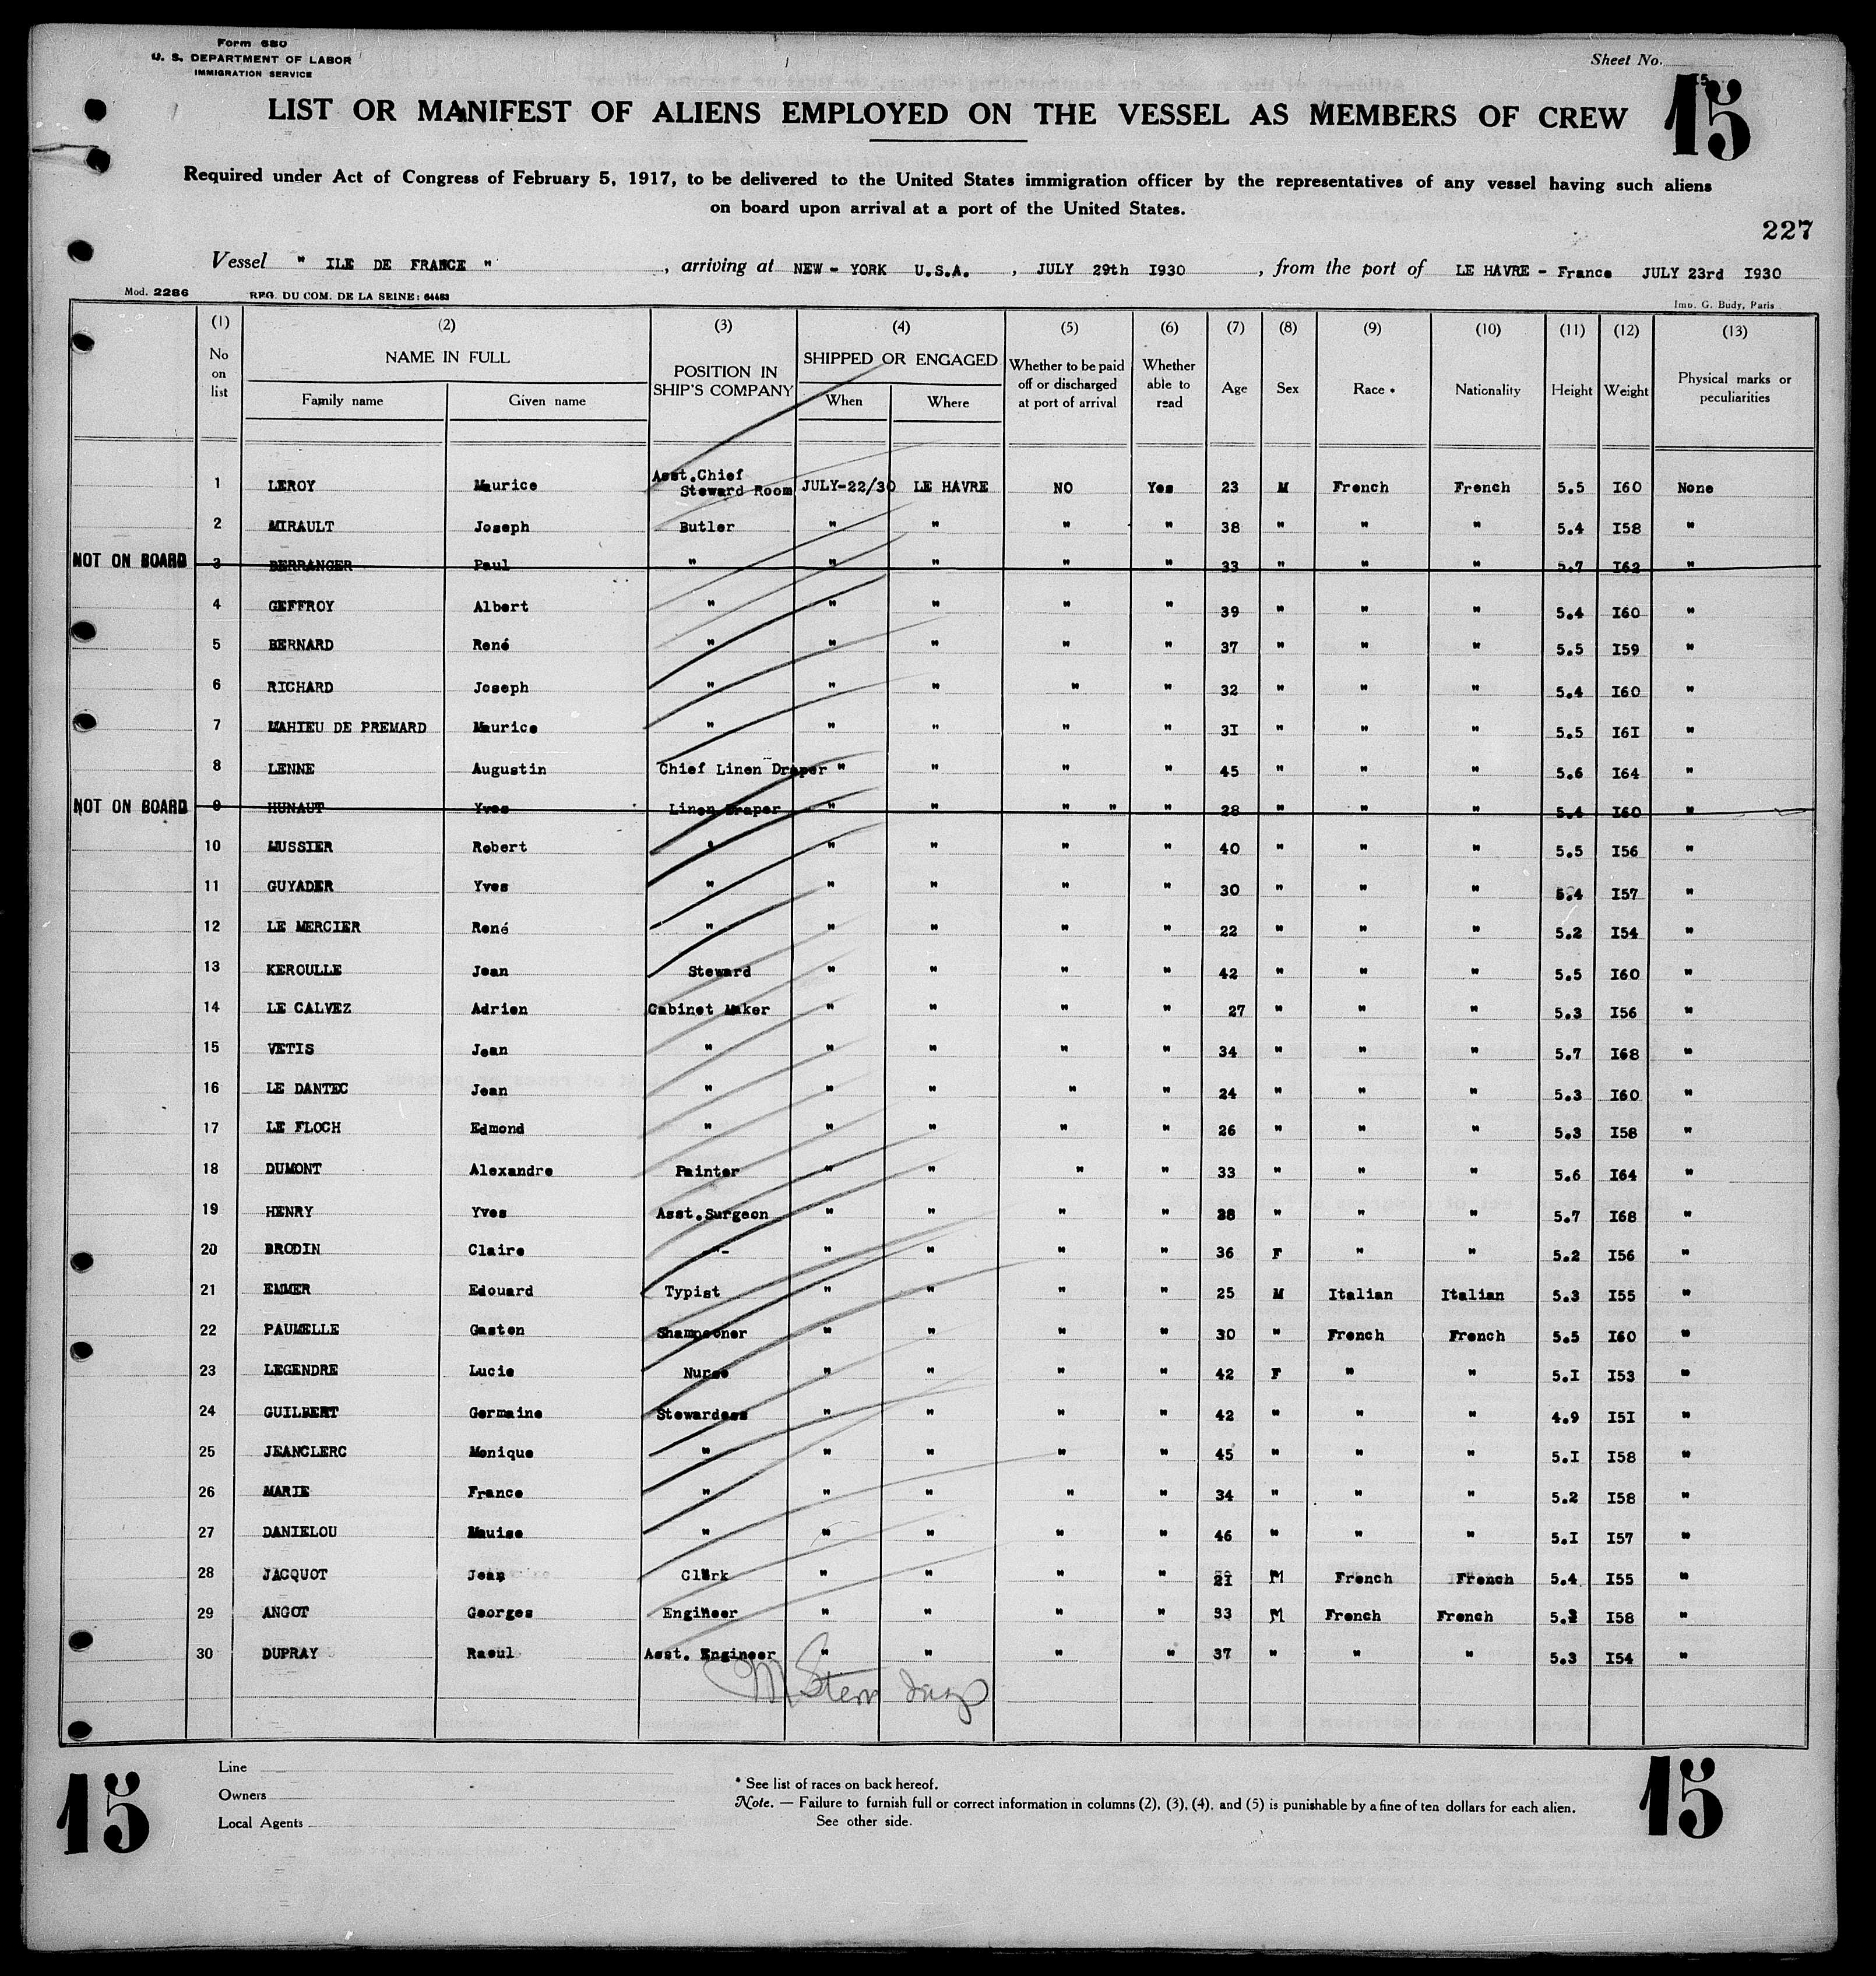 Form 680
U. S. DEPARTMENT OF LABOR
IMMIGRATION SERVICE
Sheet No.
15
15
LIST OR MANIFEST OF ALIENS EMPLOYED ON THE VESSEL AS MEMBERS OF CREW
Required under Act of Congress of February 5, 1917, to be delivered to the United States immigration officer by the representatives of any vessel having such aliens
on board upon arrival at a port of the United States.
227
Vessel " ILE DE FRANCE " , arriving at NEW - YORK U.S.A. , JULY 29th I930 , from the port of LE HAVRE - France JULY 23rd I930
Mod. 2286 REG. DU COM. DE LA SEINE: 64483 Imp. G. Budy, Paris
(1) (2) (3) (4) (5) (6) (7) (8) (9) (10) (11) (12) (13)
No on list NAME IN FULL Family name Given name POSITION IN SHIP'S COMPANY SHIPPED OR ENGAGED When Where Whether to be paid off or discharged at port of arrival Whether able to read Age Sex Race * Nationality Height Weight Physical marks or peculiarities
1 LEROY Maurice Asst.Chief Steward Room JULY-22/30 LE HAVRE NO Yes 23 M French French 5.5 I60 None
2 MIRAULT Joseph Butler " " " " 38 " " " 5.4 I58 "
NOT ON BOARD 3 BERRANGER Paul " " " " " 33 " " " 5.7 I62 "
4 GEFFROY Albert " " " " " 39 " " " 5.4 I60 "
5 BERNARD René " " " " " 37 " " " 5.5 I59 "
6 RICHARD Joseph " " " " " 32 " " " 5.4 I60 "
7 MAHIEU DE PREMARD Maurice " " " " " 3I " " " 5.5 I6I "
8 LENNE Augustin Chief Linen Draper " " " " 45 " " " 5.6 I64 "
NOT ON BOARD 9 HUNAUT Yves Linen Draper " " " " " 28 " " " 5.4 I60 "
10 MUSSIER Robert " " " " " 40 " " " 5.5 I56 "
11 GUYADER Yves " " " " " 30 " " " 5.4 I57 "
12 LE MERCIER René " " " " " 22 " " " 5.2 I54 "
13 KEROULLE Jean Steward " " " " 42 " " " 5.5 I60 "
14 LE CALVEZ Adrien Cabinet Maker " " " " 27 " " " 5.3 I56 "
15 VETIS Jean " " " " " 34 " " " 5.7 I68 "
16 LE DANTEC Jean " " " " " 24 " " " 5.3 I60 "
17 LE FLOCH Edmond " " " " " 26 " " " 5.3 I58 "
18 DUMONT Alexandre Painter " " " " 33 " " " 5.6 I64 "
19 HENRY Yves Asst.Surgeon " " " " 28 " " " 5.7 I68 "
20 BRODIN Claire -"- " " " " 36 F " " 5.2 I56 "
21 EMMER Edouard Typist " " " " 25 M Italian Italian 5.3 I55 "
22 PAUMELLE Gaston Shampooner " " " " 30 " French French 5.5 I60 "
23 LEGENDRE Lucie Nurse " " " " 42 F " " 5.I I53 "
24 GUILBERT Germaine Stewardess " " " " 42 " " " 4.9 I5I "
25 JEANCLERC Monique " " " " " 45 " " " 5.I I58 "
26 MARIE France " " " " " 34 " " " 5.2 I58 "
27 DANIELOU Mauise " " " " " 46 " " " 5.I I57 "
28 JACQUOT Jean Clerk " " " " 21 M French French 5.4 I55 "
29 ANGOT Georges Engineer " " " " 33 M French French 5.2 I58 "
30 DUPRAY Raoul Asst. Engineer " " " " 37 " " " 5.3 I54 "
M Stern
Line
Owners
Local Agents
* See list of races on back hereof.
Note. — Failure to furnish full or correct information in columns (2), (3), (4), and (5) is punishable by a fine of ten dollars for each alien.
See other side.
15
15